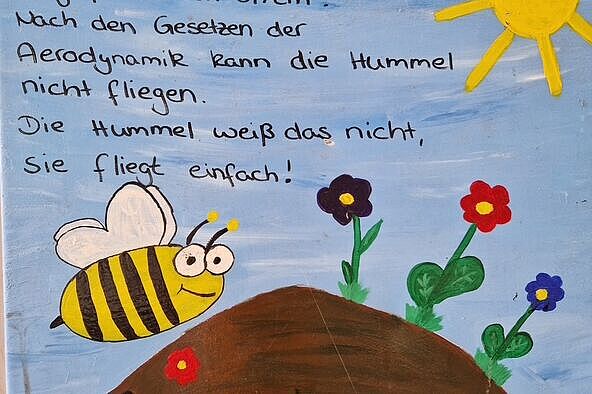 Nach den Gesetzen der
Aerodynamik kann die Hummel
nicht fliegen.
Die Hummel weiß das nicht,
Sie fliegt einfach!